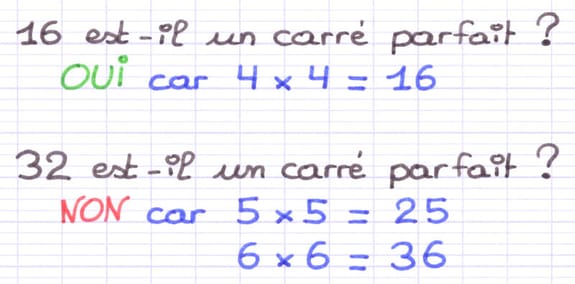 16 est-il un carré parfait ?
OUI car 4 × 4 = 16
32 est-il un carré parfait ?
NON car 5 × 5 = 25
6 × 6 = 36